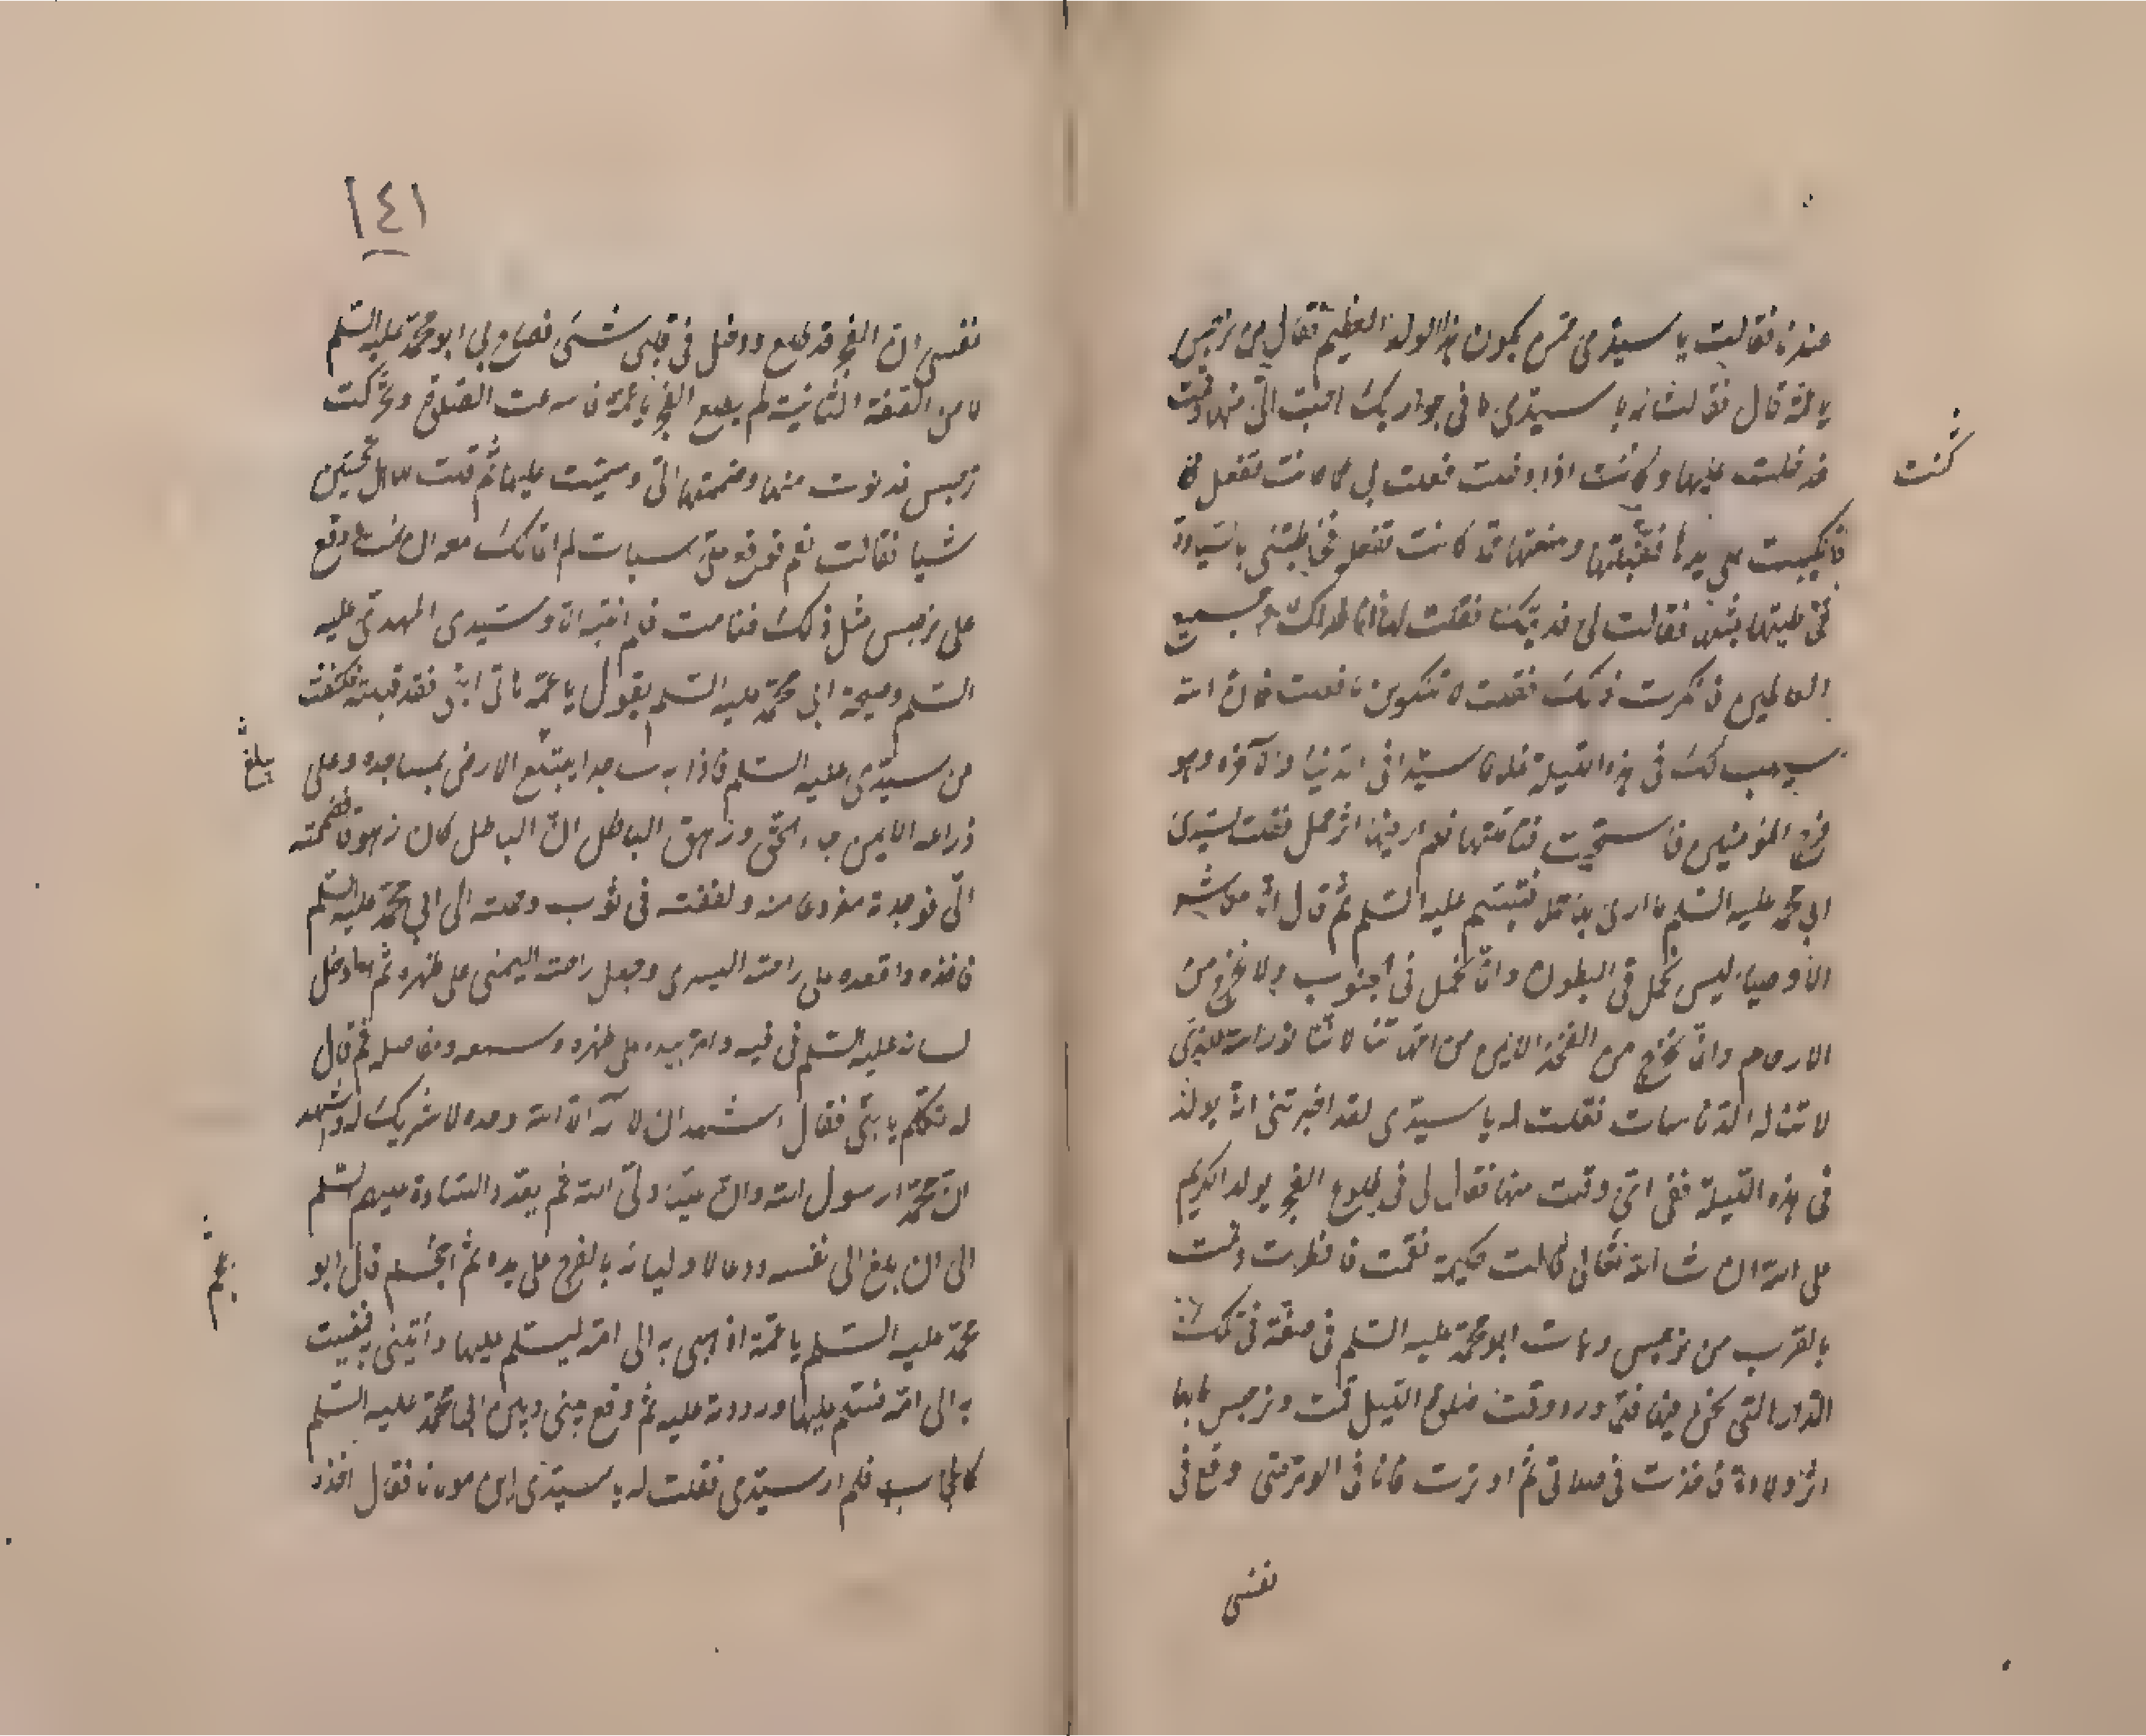 عندنا فقالت يا سيدي ممن يكون هذا الولد العظيم فقال من نرجس
يا عمة قال فقالت له يا سيدي ما في جواريك احب الي منها وقمت
فدخلت عليها وكانت اذا دخلت فعلت بي كما كانت تفعل
فانكببت على يدها فقبلتها ومنعتها مما كانت تفعل فخاطبتني بالسيادة
فخاطبتها بمثلها فقالت لي فديتك فقلت لها انا فداك وجميع
العالمين فانكرت ذلك فقلت لا تنكرين ما فعلت فان الله
سيهب لك في هذه الليلة غلاما سيدا في الدنيا والآخرة وهو
فرج المؤمنين فاستحيت فتأملتها فلم ار فيها اثر حمل فقلت لسيدي
ابي محمد عليه السلم ما ارى بها حمل فتبسم عليه السلم ثم قال انا معاشر
الأوصياء ليس نحمل في البطون وانا نحمل في الجنوب ولا نخرج من
الارحام وانا نخرج من الفخذ الايمن من امهاتنا لاننا نور الله الذي
لا تناله الدناسات فقلت له يا سيدي لقد اخبرتني انه يولد
في هذه الليلة ففي اي وقت منها فقال لي في طلوع الفجر يولد الكريم
على الله ان شاء الله تعالى قالت حكيمة فقمت فافطرت ونمت
بالقرب من نرجس وبات ابو محمد عليه السلم في صفة في تلك
الدار التي نحن فيها فلما ورد وقت صلوة الليل قمت ونرجس ما بها
اثر ولادة فاخذت في صلاتي ثم اوترت فانا في الوتر حتى وقع في
نفسي
كنت
١٤١
نفسي ان الفجر قد طلع ودخل في قلبي شئ فصاح بي ابو محمد عليه السلم
من الصفة الثانية لم يطلع الفجر يا عمة فاسرعت الصلوة وتحركت
نرجس فدنوت منها وضممتها الي وسميت عليها ثم قلت لها هل تحسين
شيا فقالت نعم فوقع علي سبات لم اتمالك معه ان نمت ووقع
على نرجس مثل ذلك فنامت فلم انتبه الا وسيدي المهدي عليه
السلم وصيحة ابي محمد عليه السلم يقول يا عمة هاتي ابني فقد قبلته فكشفت
عن سيدي عليه السلم فاذا به ساجدا يبتلع الارض بمساجده وعلى
ذراعه الايمن جاء الحق وزهق الباطل ان الباطل كان زهوقا فضممته
الي فوجدته مفروغا منه ولففته في ثوب وحملته الى ابي محمد عليه السلم
فاخذه واقعده على راحته اليسرى وجعل راحته اليمنى على ظهره ثم ادخل
لسانه عليه السلم في فيه وامر بيده على ظهره وسمعه ومفاصله ثم قال
له تكلم يا بني فقال اشهد ان لا اله الا الله وحده لا شريك له واشهد
ان محمدا رسول الله وان عليا ولي الله ثم يعدد السادة عليهم السلم
الى ان بلغ الى نفسه ودعا لاوليائه بالفرج على يده ثم احجم قال ابو
محمد عليه السلم يا عمة اذهبي به الى امه ليسلم عليها وأتيني به فمضيت
به الى امه فسلم عليها ورددته عليه ثم وقع بيني وبين ابي محمد عليه السلم
كالحجاب فلم ار سيدي فقلت له يا سيدي اين مولانا فقال اخذه
بلغ